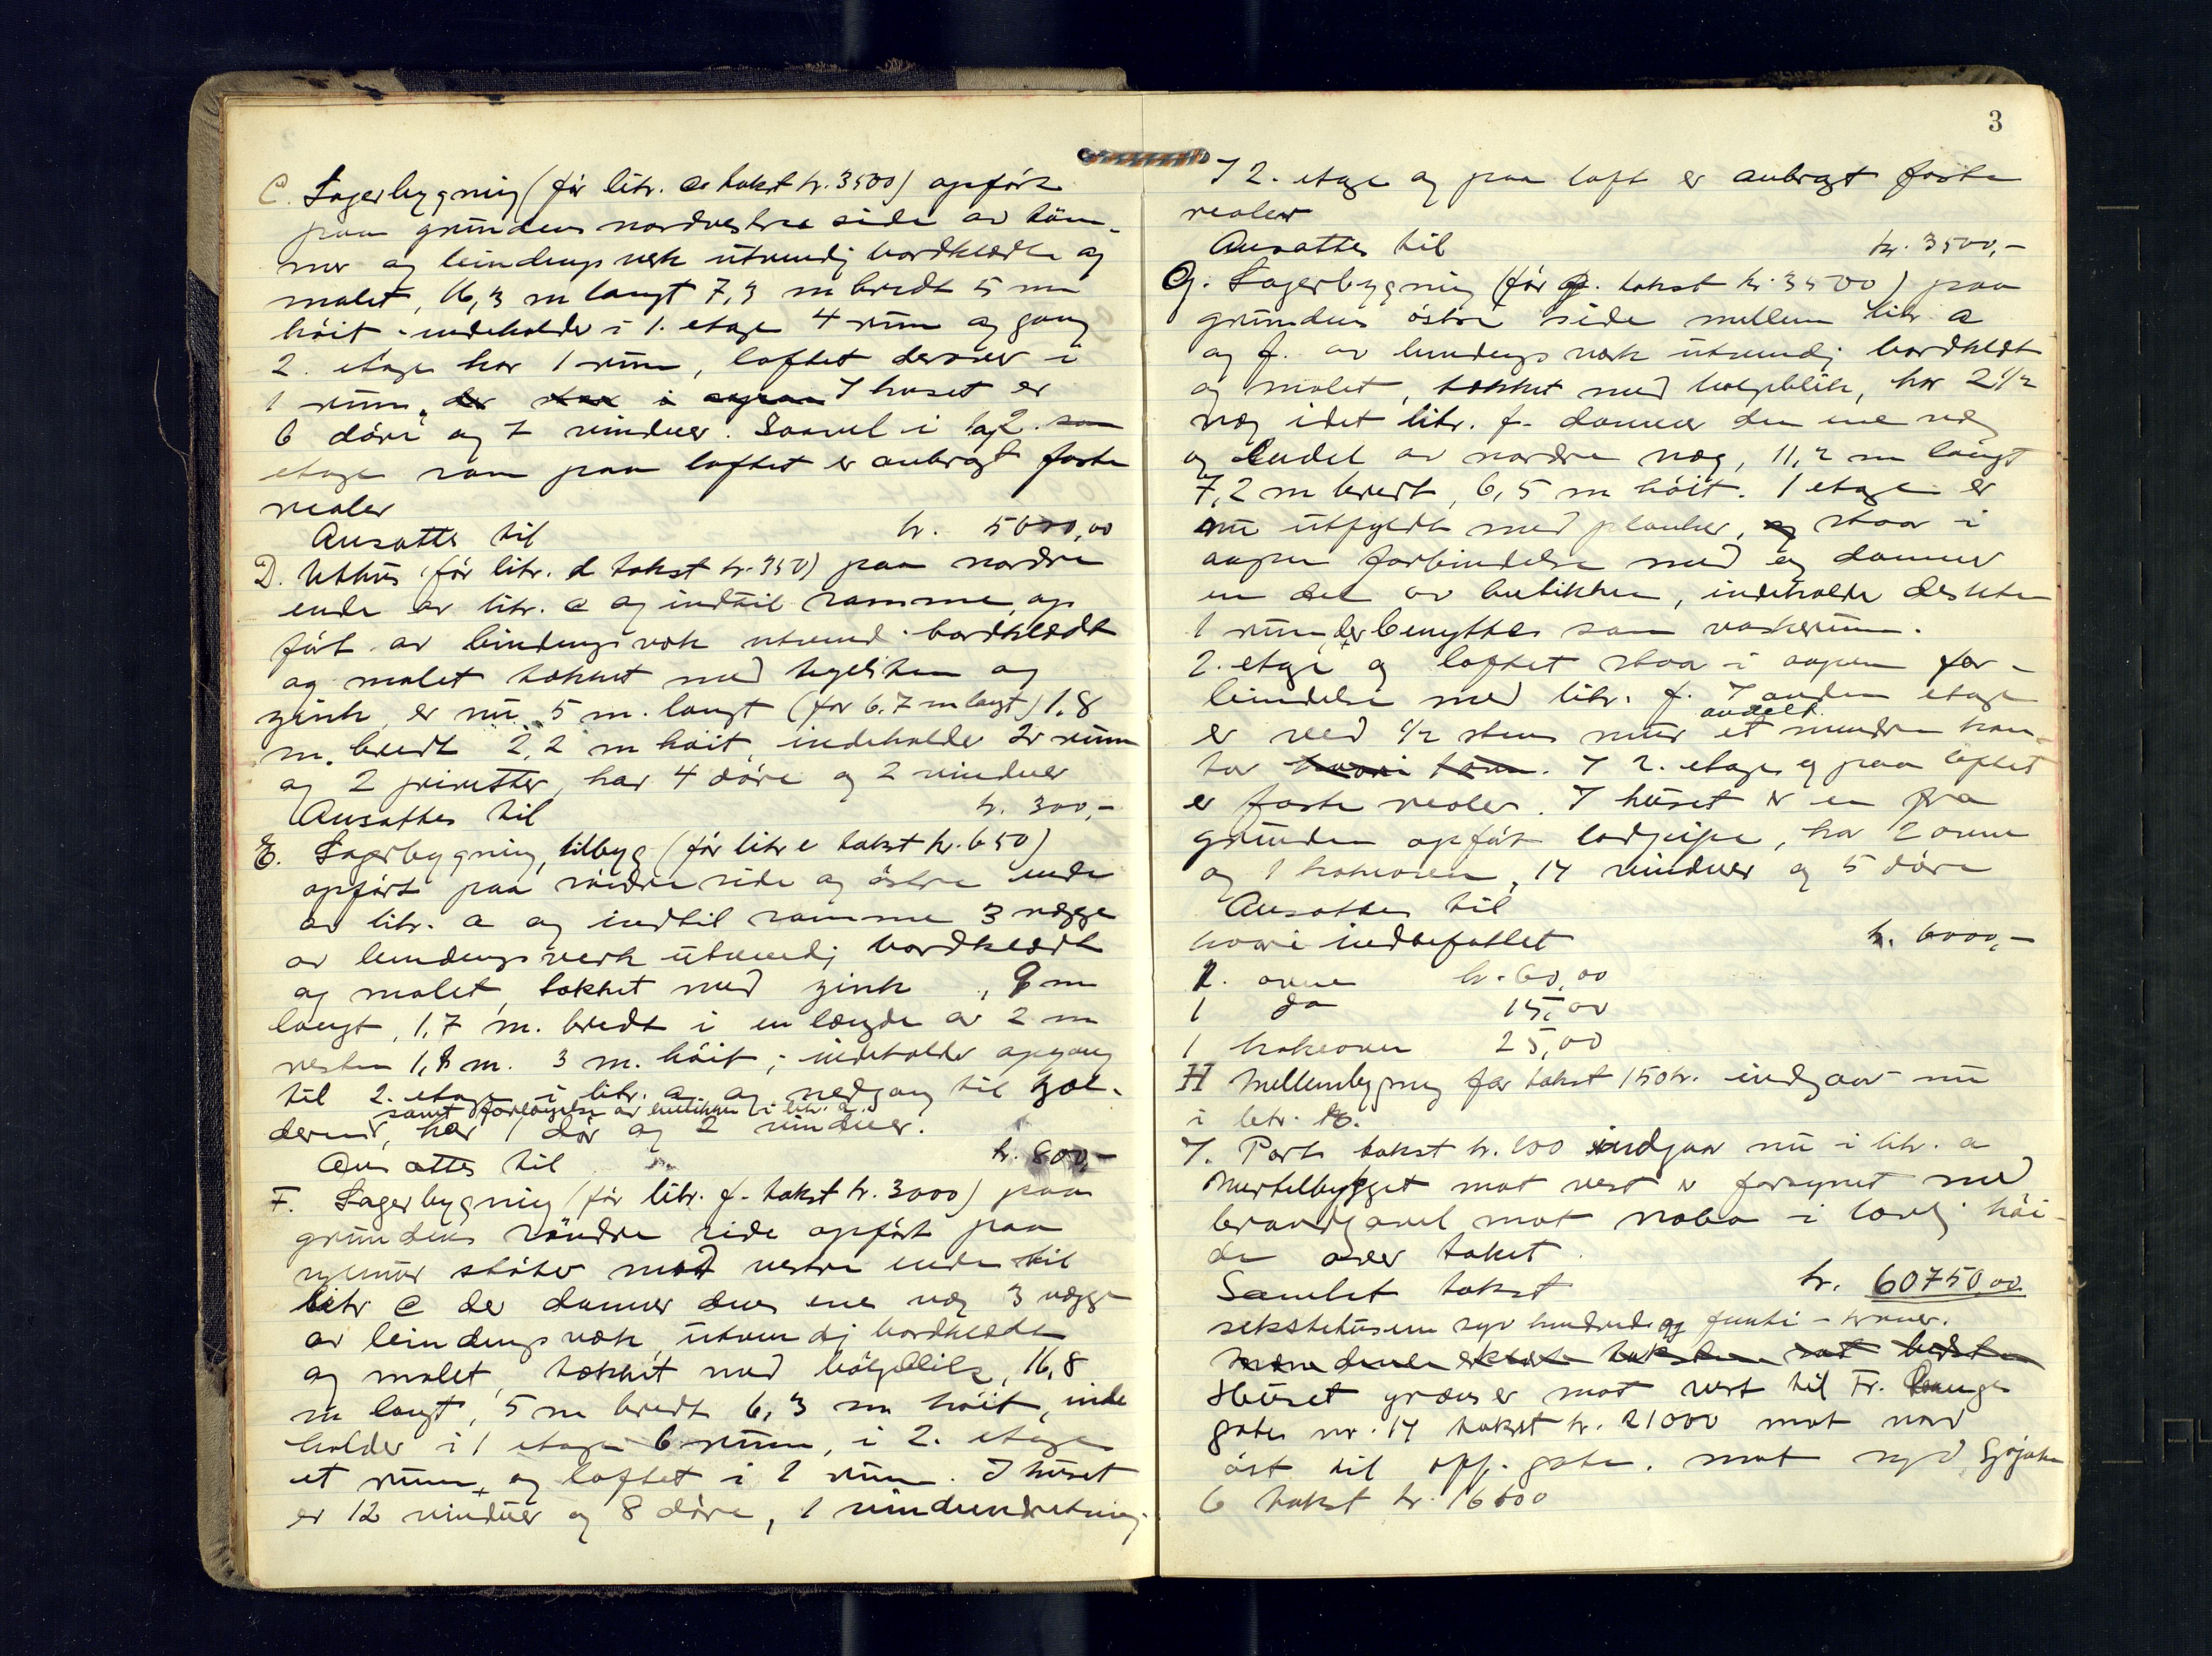 C. Lagerbygning (før litr. c takst kr. 3500) opført
paa grundens nordvestre side av töm-
mer og bindingsverk utvendig bordklædt og
malet, 16,3 m langt 7,3 m bredt 5 m
höit - indeholder i 1. etage 4 rum og gang
2. etage har 1 rum, loftet derover i
1 rum. I huset er
6 döre og 7 vinduer. Saavel i 1 og 2. som
etage som paa loftet er anbragt faste
reoler
Ansattes til kr. 5000,00
D. Uthus (för litr. d takst kr. 350) paa nordre
ende av litr. c og indtil samme, op
fört av bindingsverk utvend. bordklædt
og malet tækket med teglsten og
zink, er nu 5 m. langt (för 6.7 m langt) 1,8
m. bredt 2,2 m höit, indeholder 2 rum
og 2 privetter, har 4 döre og 2 vinduer
Ansattes til kr. 300,-
E. Lagerbygning, tilbyg (för litr e takst kr. 650)
opfört paa söndre side og östre ende
av litr. a og indtil samme 3 vægge
av bindingsverk utvendig bordklædt
og malet, tækket med zink, 9 m
langt, 1,7 m. bredt i en længde av 2 m
resten 1,8 m. 3 m. höit; indeholder opgang
til 2. etage i litr. a og nedgang til kjæl-
samt forlöngelse av butikken i litr. a.
deren, har 1 dör og 2 vinduer.
Ansattes til kr. 800,-
F. Lagerbygning (för litr. f. takst kr. 3000) paa
grundens söndre side opfört paa
mur stöter mot vestre ende til
litr c der danner dens ene væg 3 vægge
av bindingsverk, utvendig bordklædt
og malet, tækket med bölgeblik, 16,8
m langt, 5 m bredt 6,3 m höit, inde
holder i 1 etage 6 rum, i 2. etage
et rum og loftet i 1 rum. I huset
er 12 vinduer og 8 döre, 1 vindeindretning.
3
I 2. etage og paa loft er anbragt faste
reoler
Ansattes til kr. 3500,-
G. Lagerbygning (för g. takst kr. 3500) paa
grundens östre side mellem litr a
og f. av bindingsverk utvendig bordklædt
og malet, tækket med bölgeblik, har 2 1/2
væg idet litr. f. danner den ene væg
og endel av nordre væg, 11,2 m langt
7,2 m bredt, 6,5 m höit. 1 etage er
nu utfyldt med planker, staar i
aapen forbindelse med og danner
en del av butikken, indeholder desuten
1 rum der benyttes som vaskerum.
2. etage og loftet staar i aapen for-
bindelse med litr. f. I anden etage
avdelt
er ved 1/2 stens mur et mindre kon-
tor. I 2. etage og paa loftet
er faste reoler. I huset er en fra
grunden opfört lodpipe, har 2 ovne
og 1 kokeovn, 14 vinduer og 5 döre
Ansattes til
hvori indbefattet kr. 6000,-
1. ovn kr. 60,00
1 do 15,00
1 kokeovn 25,00
H Mellembygning för takst 150 kr. indgaar nu
i litr. b.
I. Port takst kr. 100 indgaar nu i litr. a
Murtilbygget mot vest er forsynet med
brandgavl mot nabo i lovlig höi-
de over taket.
Samlet takst kr. 60750,00
sekstitusen syv hundrede og femti - kroner.
Huset grænser mot vest til Fr. Langes
gate nr. 14 takst kr. 21000 mot nord
öst til opp. gate. mot syd Sjögaten
6 takst kr. 16600